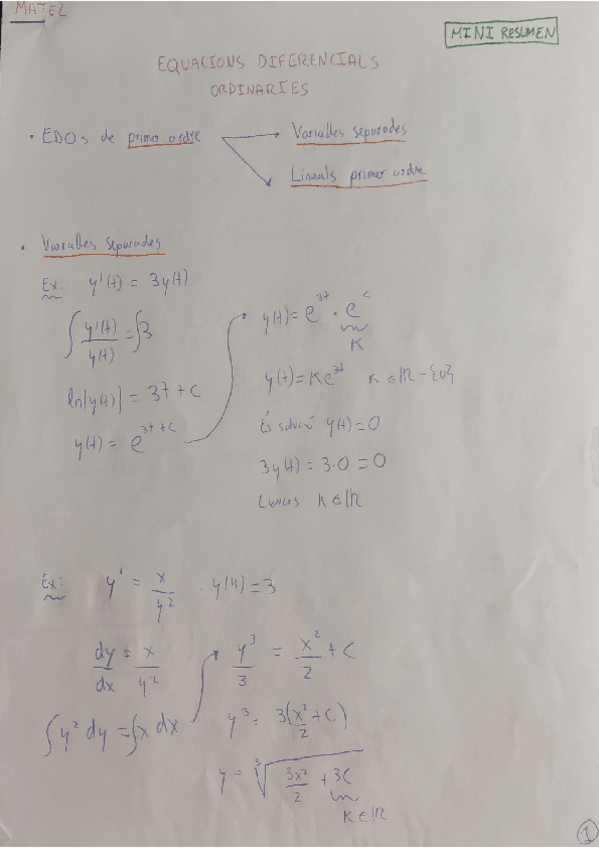 MATE2
MINI RESUMEN
EQUACIONS DIFERENCIALS
ORDINARIES
• EDOs de primer ordre
Variables separades
Lineals primer ordre
• Variables separades
Ex: y'(t) = 3y(t)
∫ y'(t)/y(t) = ∫3
ln|y(t)| = 3t + c
y(t) = e^(3t+c)
y(t) = e^(3t) · e^c
K
y(t) = Ke^(3t) K ∈ ℝ - {0}
És solució y(t) = 0
3y(t) = 3·0 = 0
K ∈ ℝ
Ex: y' = x/y² . y(4) = 3
dy/dx = x/y²
∫y² dy = ∫x dx
y³/3 = x²/2 + C
y³ = 3(x²/2 + C)
y = ∛(3x²/2 + 3C)
K ∈ ℝ
1